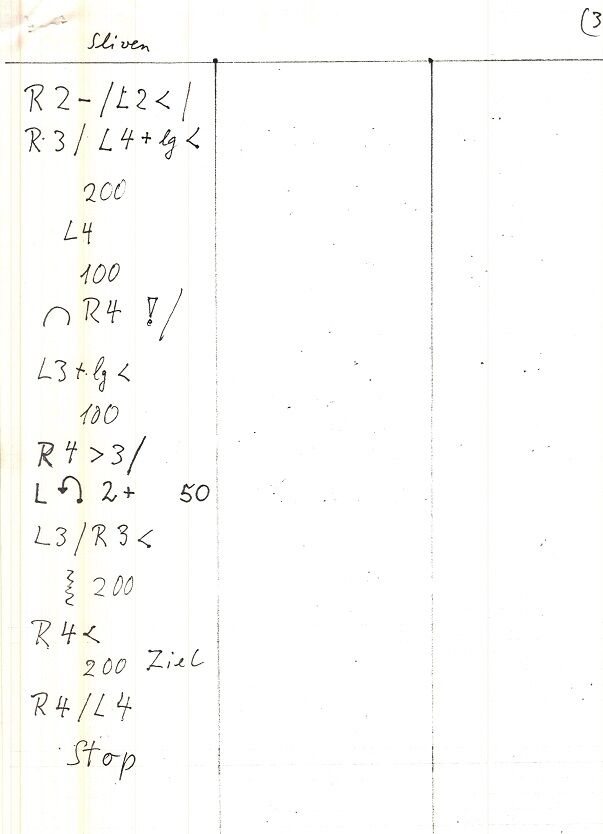 (3
Sliven
R 2 - / L 2 < /
R 3 / L 4 + lg <
200
L 4
100
⌒ R 4 ! /
L 3 + lg <
100
R 4 > 3 /
L ↶ 2 + 50
L 3 / R 3 <
200
R 4 <
200 Ziel
R 4 / L 4
Stop